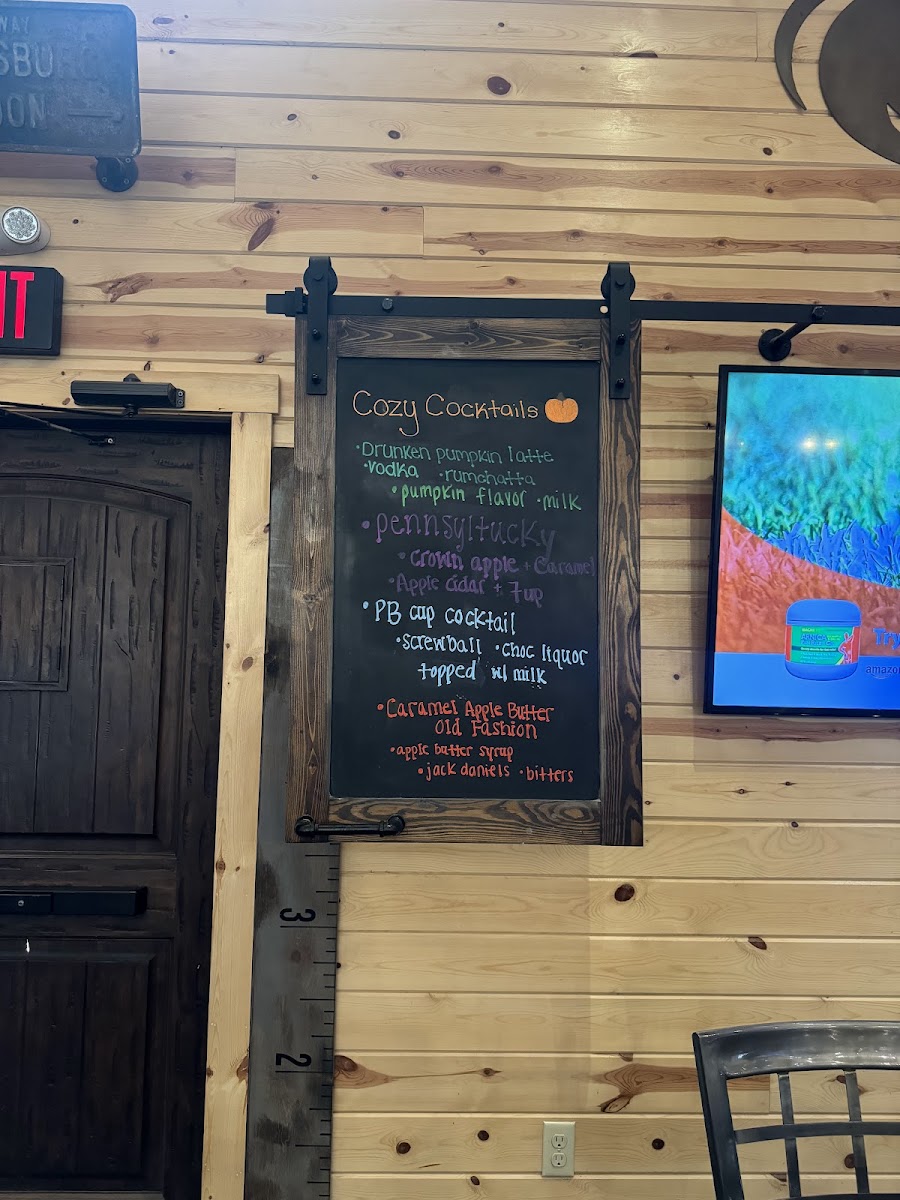 WAY
SBU
DON
IT
Cozy Cocktails
•Drunken pumpkin latte
•vodka •rumchatta
•pumpkin flavor •milk
•pennsyltucky
•crown apple + Caramel
•Apple cidar + 7up
•PB cup cocktail
•screwball •choc liquor
topped w/ milk
•Caramel Apple Butter
Old Fashion
•apple butter syrup
•jack daniels •bitters
Try
amazo
3
2